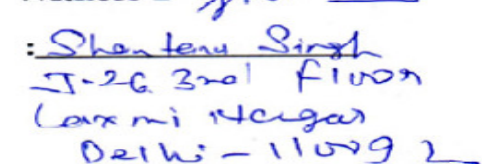 : Shantanu Singh
J-26 3rd Floor
Laxmi Nagar
Delhi - 110092